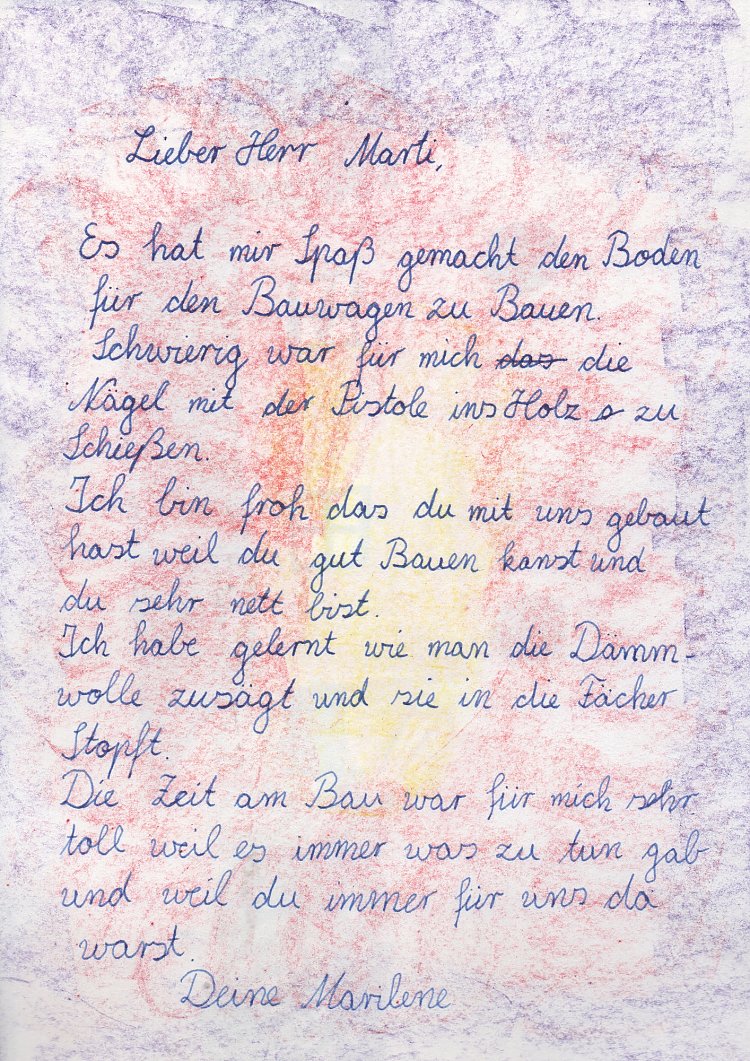 Lieber Herr Marti,
Es hat mir Spaß gemacht den Boden
für den Bauwagen zu Bauen.
Schwierig war für mich das die
Nägel mit der Pistole ins Holz s zu
Schießen.
Ich bin froh das du mit uns gebaut
hast weil du gut Bauen kanst und
du sehr nett bist.
Ich habe gelernt wie man die Dämm-
wolle zusägt und sie in die Fächer
Stopft.
Die Zeit am Bau war für mich sehr
toll weil es immer was zu tun gab
und weil du immer für uns da
warst.
Deine Marilene